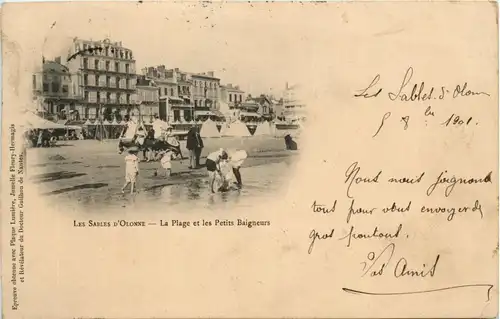 Les Sables d'Olonne
5 8bre 1901.
Nous nous joignons
tous pour vous envoyer
gros poutous.
Vos Amis
LES SABLES D'OLONNE — La Plage et les Petits Baigneurs
Epreuve obtenue avec Plaque Lumière, Jumelle Fleury-Hermagis
et Révélateur du Docteur Guilbeu de Nantes.